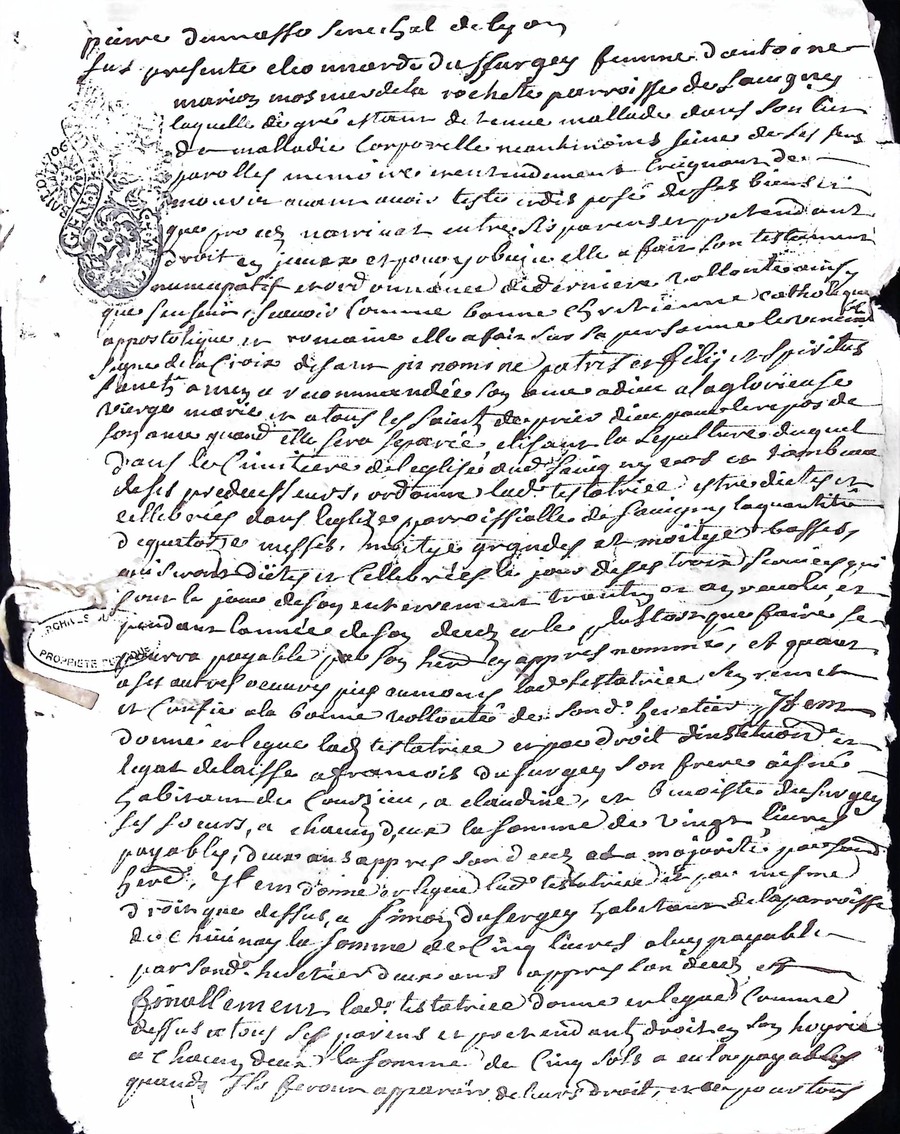 pierre dumasso senechal de lyon
fut presente eleonnarde dussurgey femme d'antoine
mariez mosnier de la rochete parroisse de savigny
laquelle de gré estant detenue mallade dans son lict
de malladie corporelle neantmoins seine de ses sens
parolles memoire et entendement Craignant de
mourir avant avoir testé et disposé de ses biens et
que procez narrivat entre ses parens et pretendant
droit en jceux et pour y obvier elle a fait son testament
nuncupatif et ordonnance de derniere vollonté ainsy
que sensuit, scavoir comme bonne chrestienne catholique
appostolique et romaine elle a fait sur sa personne le venerable
signe de la Croix disant jn nomine patris et filij et spiritus
sancti amen a recommandée son ame a dieu a la glorieuse
vierge marie et a tous les saints de prier dieu pour le repos de
son ame quand elle sera separée, elisant la sepulture du
dans le Cimitiere de leglise dud. savigny et tombeau
de ses predecesseurs, ordonne lad. testatrice estre dictes et
cellebrées dans leglize parroissialle de savigny la quantité
de quatorze messes, moitye grandes et moitye basses,
qui seront dictes et Cellebrées le jour de ses trois services qui
sont le jour de son enterrement trentin et an revolu, et
pendant lannée de son deced et le plustost que faire se
pourra payable par son herd. cy appres nommé, et quant
a ses autres oeuvres pies aumones lad. testatrice sen remet
et Confie a la bonne vollonté de sond. heretier, Jtem
donne et legue lad. testatrice et par droit d'institution et
legat delaisse a francois dusurgey son frere aisné
habitant de Couzieu, a claudine, et benoiste dusurgey
ses soeurs, a chacun deux la somme de vingt livres
payables, deux ans appres son deced et a majorité par sond.
herd., Jtem donne et legue lad. testatrice et par mesme
droit que dessus, a simon dusurgey habitant de la parroisse
de chivinay la somme de Cinq livres a luy payable
par sond. heretier deux ans appres son deced, et
finallement lad. testatrice donne et legue Comme
dessus a tous ses parens et pretendant droit en son hoyrie
a chacun deux la somme de Cinq sols a eux payables
quand Jls feront apparoir de leurs droit, et ce pour tous
GEN. DE
PROPRIETE